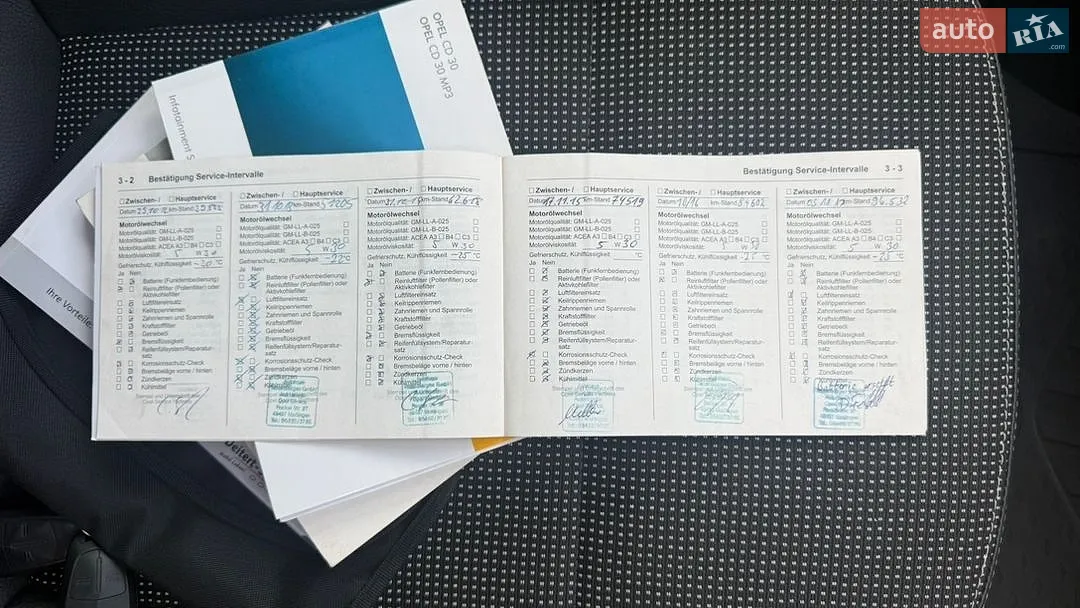 auto RIA .com
OPEL CD 30
OPEL CD 30 MP3
Infotainment S
Ihre Vorteile
3 - 2 Bestätigung Service-Intervalle
Zwischen-/ Hauptservice
Datum km-Stand
Motorölwechsel
Motorölqualität: GM-LL-A-025
Motorölqualität: GM-LL-B-025
Motorölqualität: ACEA A3 B4 C3
Motorölviskosität: 5 W 30
Gefrierschutz, Kühlflüssigkeit -30 °C
Ja Nein
Batterie (Funkfernbedienung)
Reinluftfilter (Pollenfilter) oder
Aktivkohlefilter
Luftfiltereinsatz
Keilrippenriemen
Zahnriemen und Spannrolle
Kraftstofffilter
Getriebeöl
Bremsflüssigkeit
Reifenfüllsystem/Reparatur-
satz
Korrosionsschutz-Check
Bremsbeläge vorne / hinten
Zündkerzen
Kühlmittel
Zwischen-/ Hauptservice
Datum km-Stand 51205
Motorölwechsel
Motorölqualität: GM-LL-A-025
Motorölqualität: GM-LL-B-025
Motorölqualität: ACEA A3 B4 C3
Motorölviskosität: 5 W 30
Gefrierschutz, Kühlflüssigkeit -22 °C
Ja Nein
Batterie (Funkfernbedienung)
Reinluftfilter (Pollenfilter) oder
Aktivkohlefilter
Luftfiltereinsatz
Keilrippenriemen
Zahnriemen und Spannrolle
Kraftstofffilter
Getriebeöl
Bremsflüssigkeit
Reifenfüllsystem/Reparatur-
satz
Korrosionsschutz-Check
Bremsbeläge vorne / hinten
Zündkerzen
Kühlmittel
Zwischen-/ Hauptservice
Datum km-Stand 62618
Motorölwechsel
Motorölqualität: GM-LL-A-025
Motorölqualität: GM-LL-B-025
Motorölqualität: ACEA A3 B4 C3
Motorölviskosität: 5 W 30
Gefrierschutz, Kühlflüssigkeit -25 °C
Ja Nein
Batterie (Funkfernbedienung)
Reinluftfilter (Pollenfilter) oder
Aktivkohlefilter
Luftfiltereinsatz
Keilrippenriemen
Zahnriemen und Spannrolle
Kraftstofffilter
Getriebeöl
Bremsflüssigkeit
Reifenfüllsystem/Reparatur-
satz
Korrosionsschutz-Check
Bremsbeläge vorne / hinten
Zündkerzen
Kühlmittel
Bestätigung Service-Intervalle 3 - 3
Zwischen-/ Hauptservice
Datum 17.11.15 km-Stand 74519
Motorölwechsel
Motorölqualität: GM-LL-A-025
Motorölqualität: GM-LL-B-025
Motorölqualität: ACEA A3 B4 C3
Motorölviskosität: 5 W 30
Gefrierschutz, Kühlflüssigkeit °C
Ja Nein
Batterie (Funkfernbedienung)
Reinluftfilter (Pollenfilter) oder
Aktivkohlefilter
Luftfiltereinsatz
Keilrippenriemen
Zahnriemen und Spannrolle
Kraftstofffilter
Getriebeöl
Bremsflüssigkeit
Reifenfüllsystem/Reparatur-
satz
Korrosionsschutz-Check
Bremsbeläge vorne / hinten
Zündkerzen
Kühlmittel
Zwischen-/ Hauptservice
Datum 10/16 km-Stand 84602
Motorölwechsel
Motorölqualität: GM-LL-A-025
Motorölqualität: GM-LL-B-025
Motorölqualität: ACEA A3 B4 C3
Motorölviskosität: 5 W 30
Gefrierschutz, Kühlflüssigkeit -25 °C
Ja Nein
Batterie (Funkfernbedienung)
Reinluftfilter (Pollenfilter) oder
Aktivkohlefilter
Luftfiltereinsatz
Keilrippenriemen
Zahnriemen und Spannrolle
Kraftstofffilter
Getriebeöl
Bremsflüssigkeit
Reifenfüllsystem/Reparatur-
satz
Korrosionsschutz-Check
Bremsbeläge vorne / hinten
Zündkerzen
Kühlmittel
Zwischen-/ Hauptservice
Datum 03.11.17 km-Stand 96.532
Motorölwechsel
Motorölqualität: GM-LL-A-025
Motorölqualität: GM-LL-B-025
Motorölqualität: ACEA A3 B4 C3
Motorölviskosität: 5 W 30
Gefrierschutz, Kühlflüssigkeit -25 °C
Ja Nein
Batterie (Funkfernbedienung)
Reinluftfilter (Pollenfilter) oder
Aktivkohlefilter
Luftfiltereinsatz
Keilrippenriemen
Zahnriemen und Spannrolle
Kraftstofffilter
Getriebeöl
Bremsflüssigkeit
Reifenfüllsystem/Reparatur-
satz
Korrosionsschutz-Check
Bremsbeläge vorne / hinten
Zündkerzen
Kühlmittel